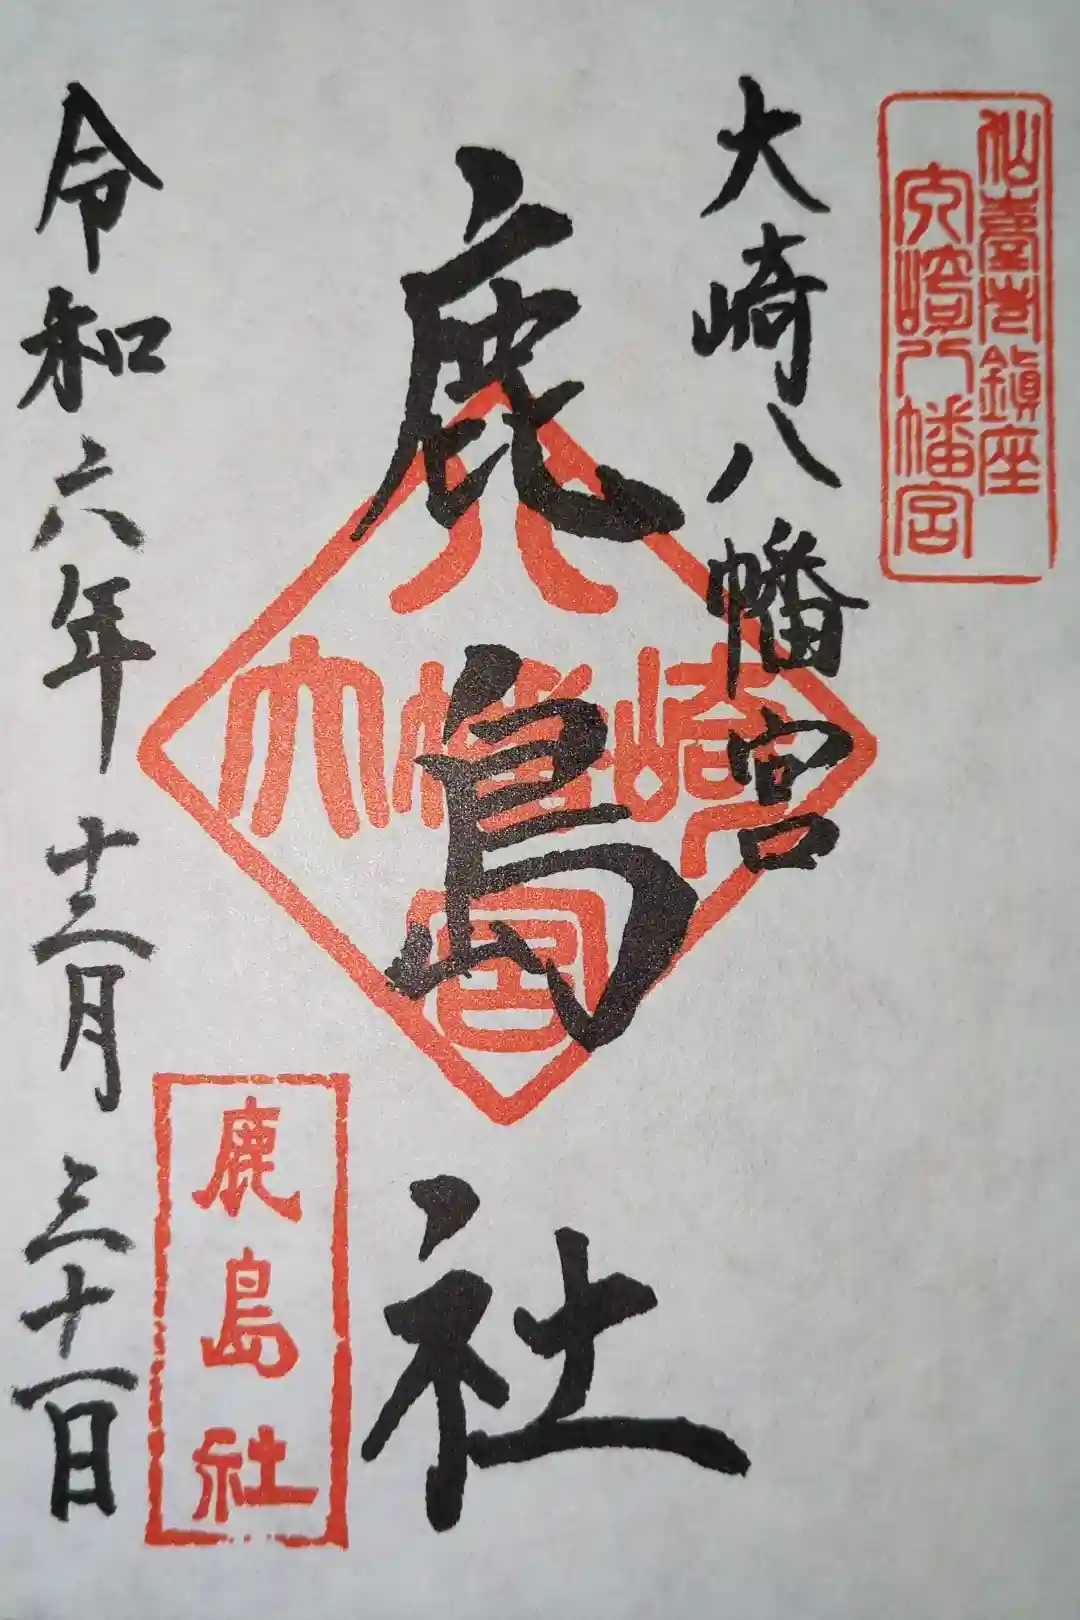 仙臺市鎮座
大崎八幡宮
大崎八幡宮
鹿島社
大崎八幡宮
鹿島社
令和六年十二月三十一日